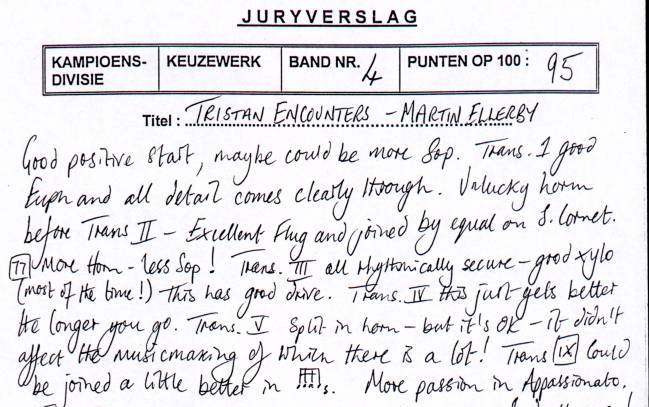 JURYVERSLAG
KAMPIOENS-DIVISIE KEUZEWERK BAND NR. 4 PUNTEN OP 100 : 95
Titel : TRISTAN ENCOUNTERS - MARTIN ELLERBY
Good positive start, maybe could be more Sop. Trans. I good
Euph and all detail comes clearly through. Unlucky horn
before Trans II - Excellent Flug and joined by equal on S. Cornet.
77 More Horn - less Sop! Trans. III all rhythmically secure - good xylo
(most of the time!) This has good drive. Trans. IV this just gets better
the longer you go. Trans. V Split in horn - but it's OK - it didn't
affect the musicmaking of which there is a lot! Trans IX Could
be joined a little better in s. More passion in Appassionato.